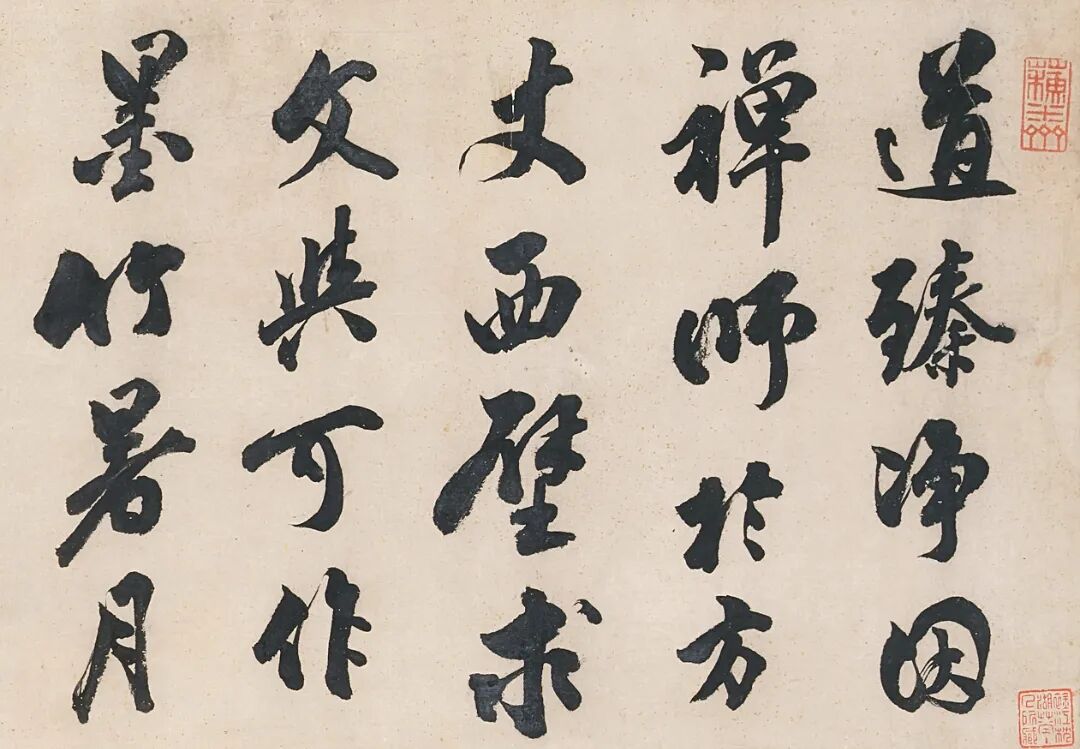 道臻净因
禅師於方
丈西壁求
文與可作
墨竹暑月